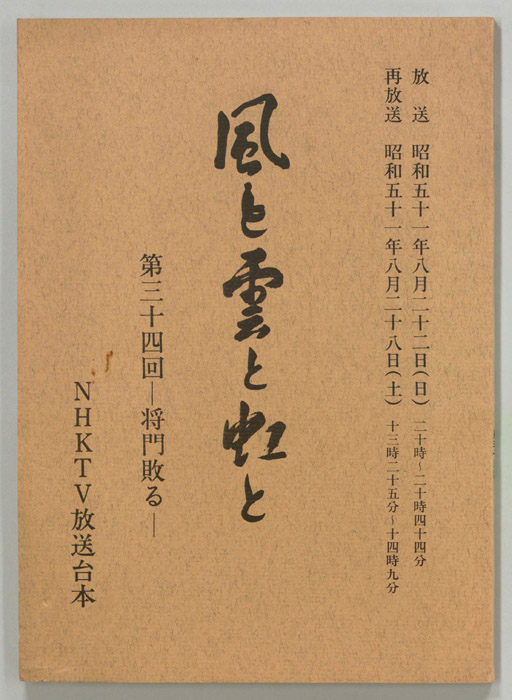 放送 昭和五十一年八月二十二日(日) 二十時~二十時四十四分
再放送 昭和五十一年八月二十八日(土) 十三時二十五分~十四時九分
風と雲と虹と
第三十四回―将門敗る―
NHKTV放送台本